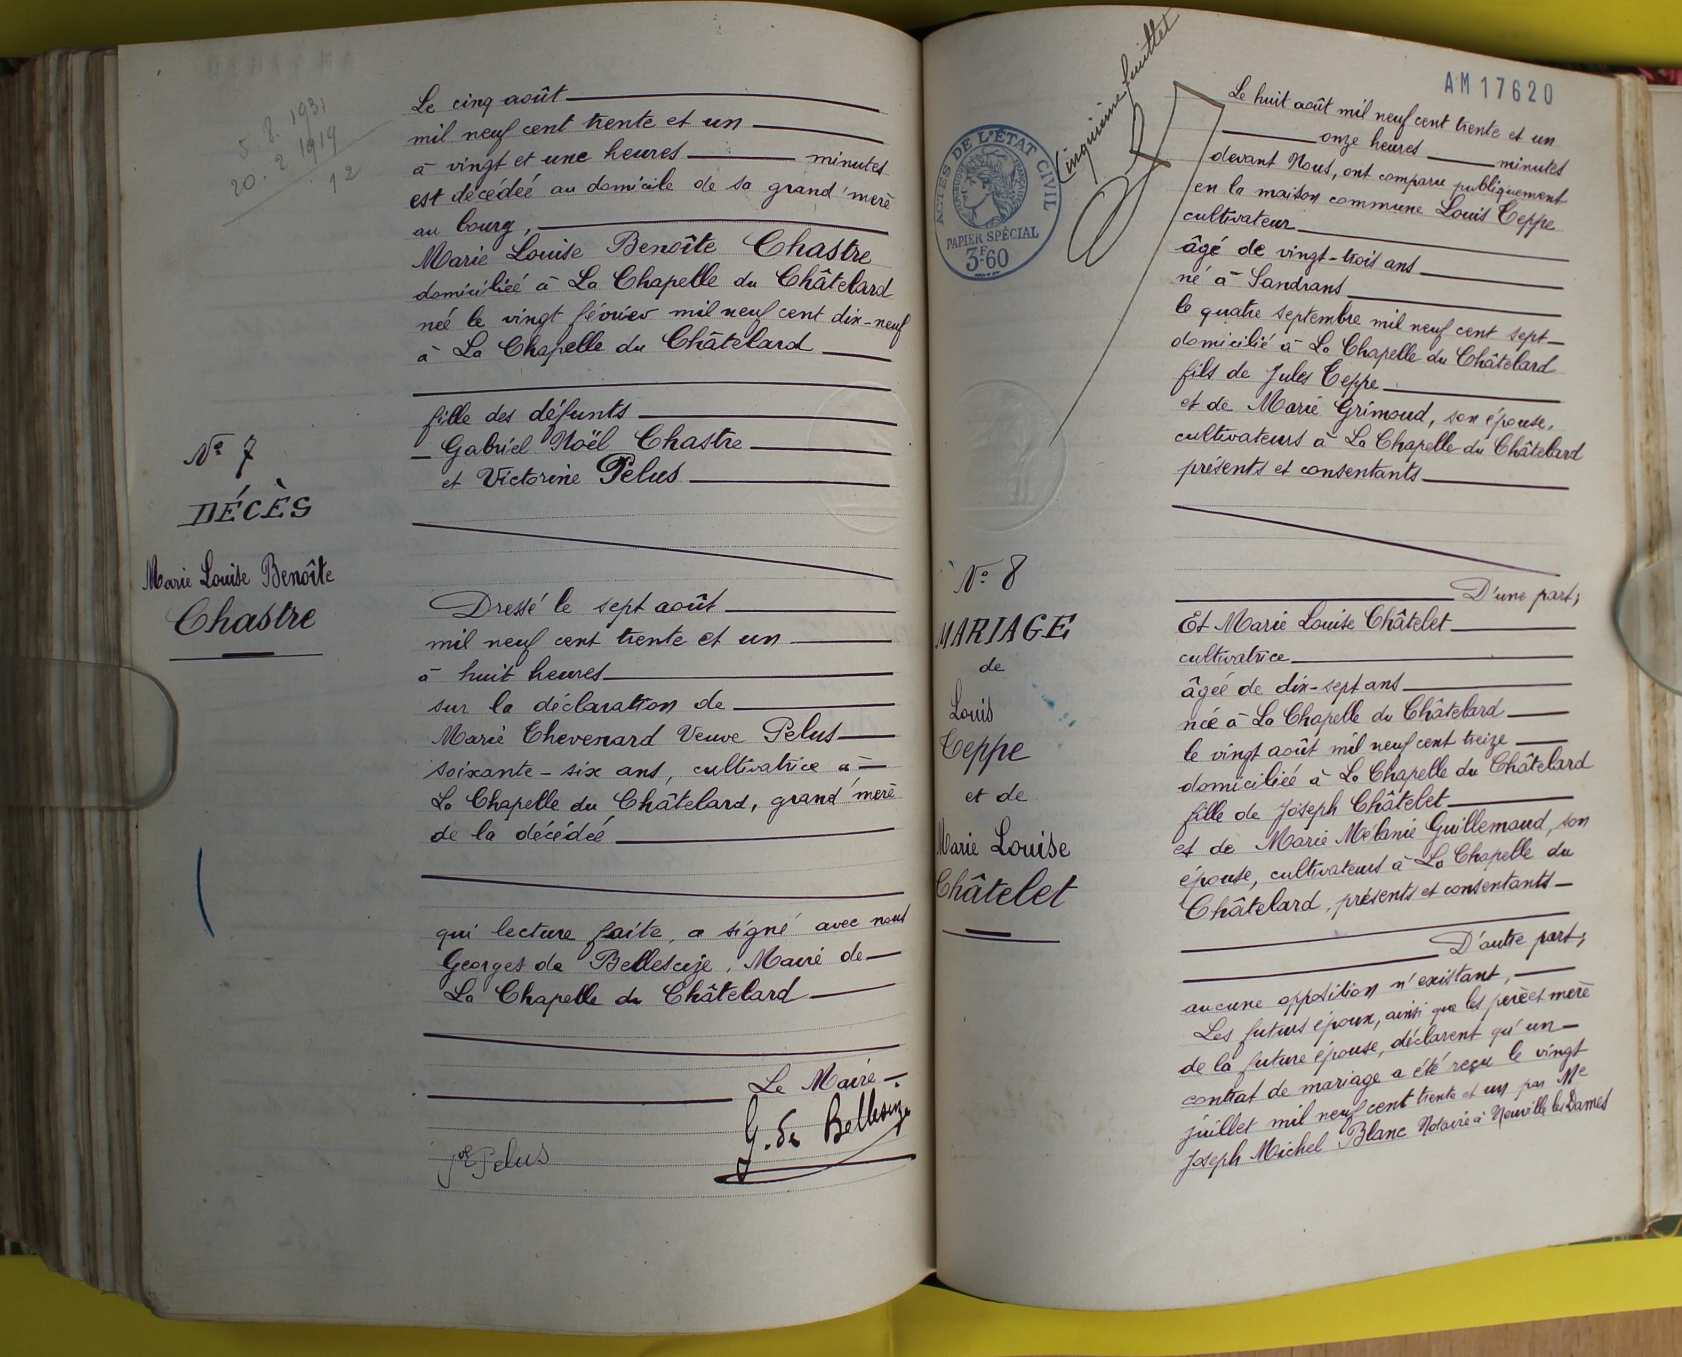 5. 8. 1931
20. 2 1919
12
N° 7
DÉCÈS
Marie Louise Benoîte
Chastre
Le cinq août
mil neuf cent trente et un
à vingt et une heures minutes
est décédée au domicile de sa grand'mère
au bourg,
Marie Louise Benoîte Chastre
domiciliée à La Chapelle du Châtelard
née le vingt février mil neuf cent dix-neuf
à La Chapelle du Châtelard
fille des défunts
Gabriel Noël Chastre
et Victorine Pelus
Dressé le sept août
mil neuf cent trente et un
à huit heures
sur la déclaration de
Marie Thevenard Veuve Pelus
soixante-six ans, cultivatrice à
La Chapelle du Châtelard, grand'mère
de la décédée
qui lecture faite, a signé avec nous
Georges de Bellescize, Maire de
La Chapelle du Châtelard
Le Maire
G. de Bellescize
Pelus
AM17620
Cinquième feuillet
ACTES DE L'ÉTAT CIVIL
PAPIER SPÉCIAL
3F.60
N° 8
MARIAGE
de
Louis
Teppe
et de
Marie Louise
Châtelet
Le huit août mil neuf cent trente et un
onze heures minutes
devant Nous, ont comparu publiquement
en la maison commune Louis Teppe
cultivateur
âgé de vingt-trois ans
né à Sandrans
le quatre septembre mil neuf cent sept
domicilié à La Chapelle du Châtelard
fils de Jules Teppe
et de Marie Grimoud, son épouse,
cultivateurs à La Chapelle du Châtelard
présents et consentants
D'une part;
Et Marie Louise Châtelet
cultivatrice
âgée de dix-sept ans
née à La Chapelle du Châtelard
le vingt août mil neuf cent treize
domiciliée à La Chapelle du Châtelard
fille de Joseph Châtelet
et de Marie Mélanie Guillemaud, son
épouse, cultivateurs à La Chapelle du
Châtelard, présents et consentants
D'autre part;
aucune opposition n'existant,
Les futurs époux, ainsi que les père et mère
de la future épouse, déclarent qu'un
contrat de mariage a été reçu le vingt
juillet mil neuf cent trente et un par Me
Joseph Michel Blanc Notaire à Neuville les Dames